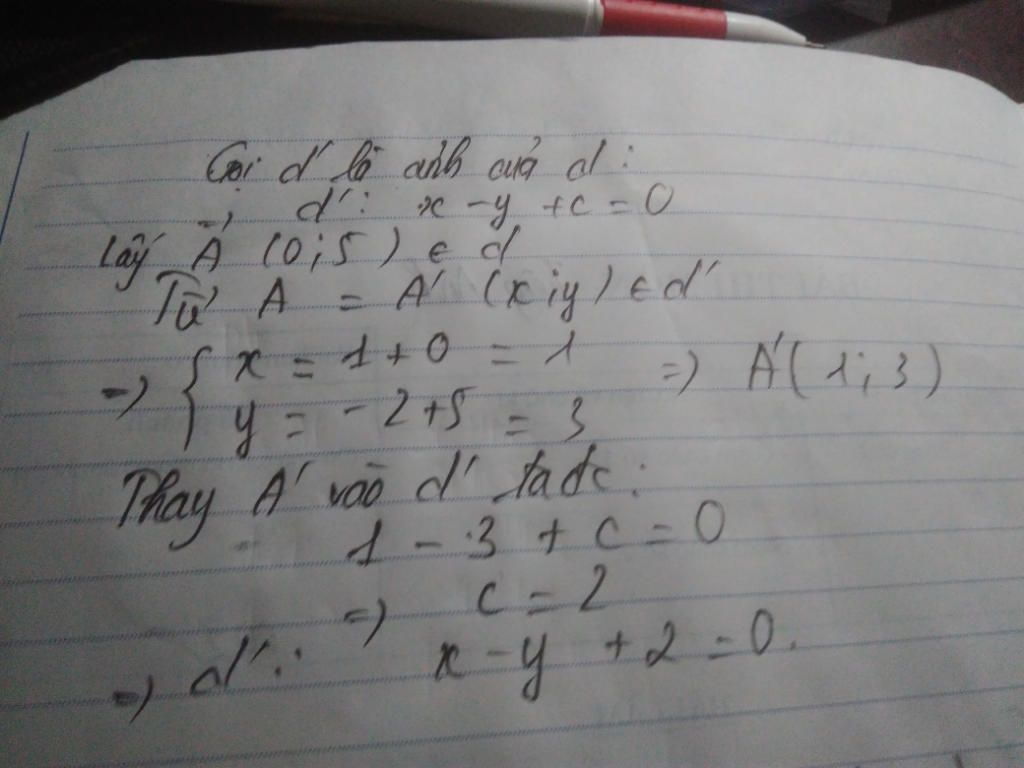 Gọi d' là ảnh của d:
=> d': x - y + c = 0
Lấy A (0;5) ∈ d
A = A' (x;y) ∈ d'
=> { x = 1 + 0 = 1
y = -2 + 5 = 3 => A' (1;3)
Thay A' vào d' ta đc:
1 - 3 + c = 0
=> c = 2
=> d': x - y + 2 = 0.